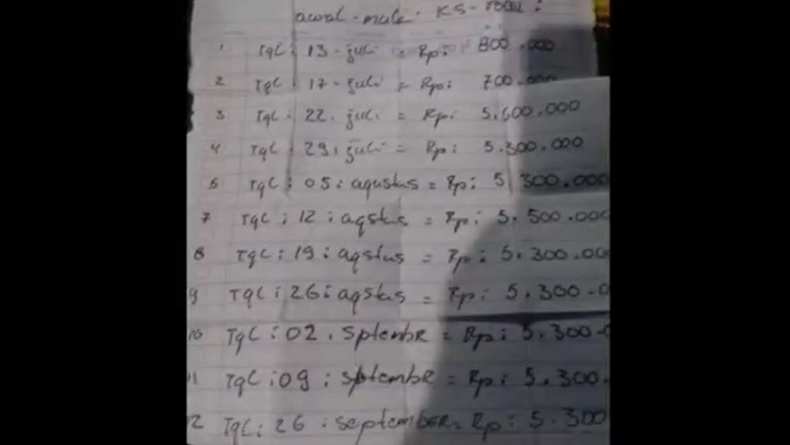 awal mula KS-
1 TgL: 13 - juli = Rp: 800.000
2 TgL: 17 - juli = Rp: 700.000
3 TgL: 22. juli = Rp: 5.600.000
4 TgL: 29. juli = Rp: 5.300.000
5 TgL: 05: agustus = Rp: 5 300.000
7 TgL: 12: agstus = Rp: 5.500.000
8 TgL: 19: agstus = Rp: 5.300.00
9 TgL: 26: agstus = Rp: 5.300.0
10 TgL: 02. SptembR = Rp: 5.300.
11 TgL: 09: sptembR = Rp: 5.300.
12 TgL: 26: septembeR = Rp: 5.300